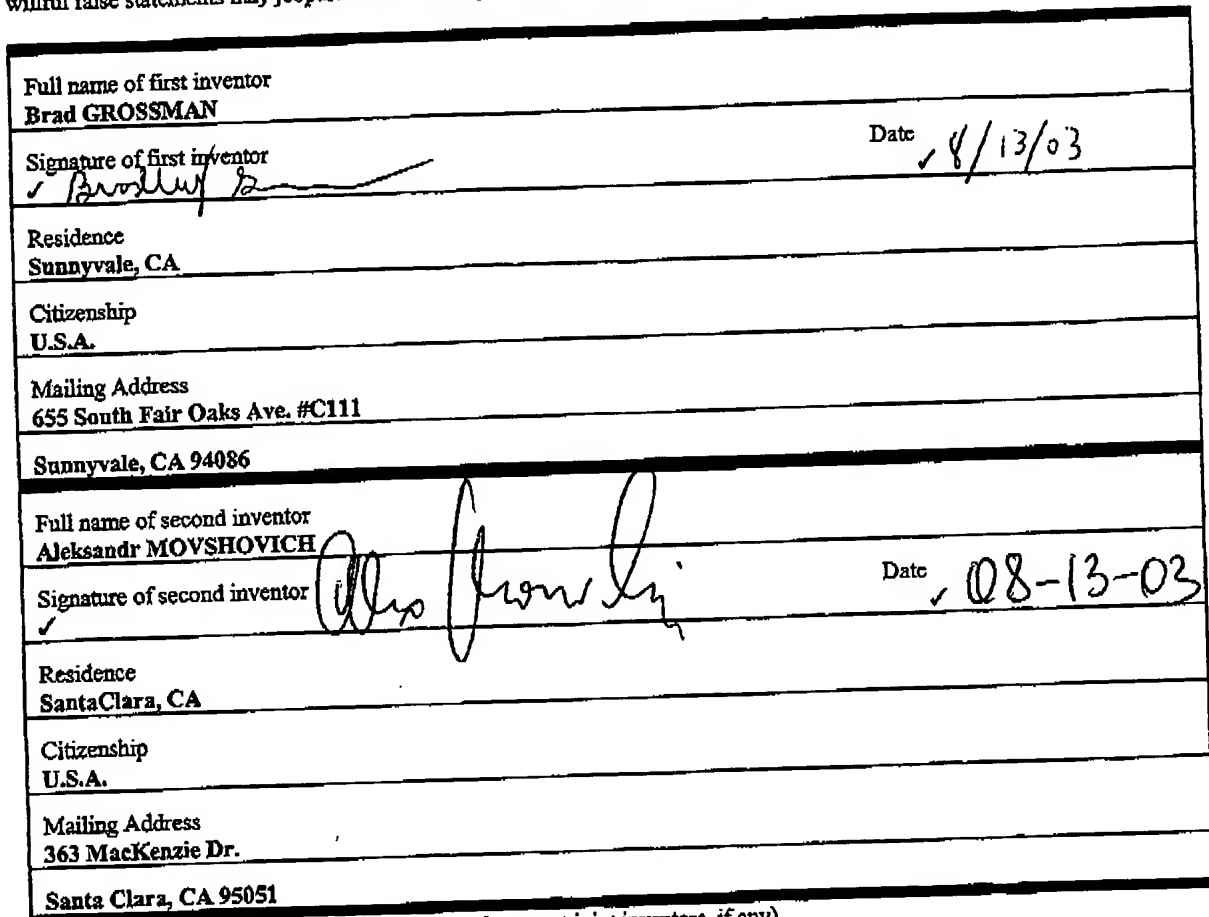 willful false statements may
Full name of first inventor
Brad GROSSMAN
Signature of first inventor
Date ✓ 8/13/03
✓
Residence
Sunnyvale, CA
Citizenship
U.S.A.
Mailing Address
655 South Fair Oaks Ave. #C111
Sunnyvale, CA 94086
Full name of second inventor
Aleksandr MOVSHOVICH
Signature of second inventor
Date ✓ 08-13-03
✓
Residence
SantaClara, CA
Citizenship
U.S.A.
Mailing Address
363 MacKenzie Dr.
Santa Clara, CA 95051
joint inventors, if any)